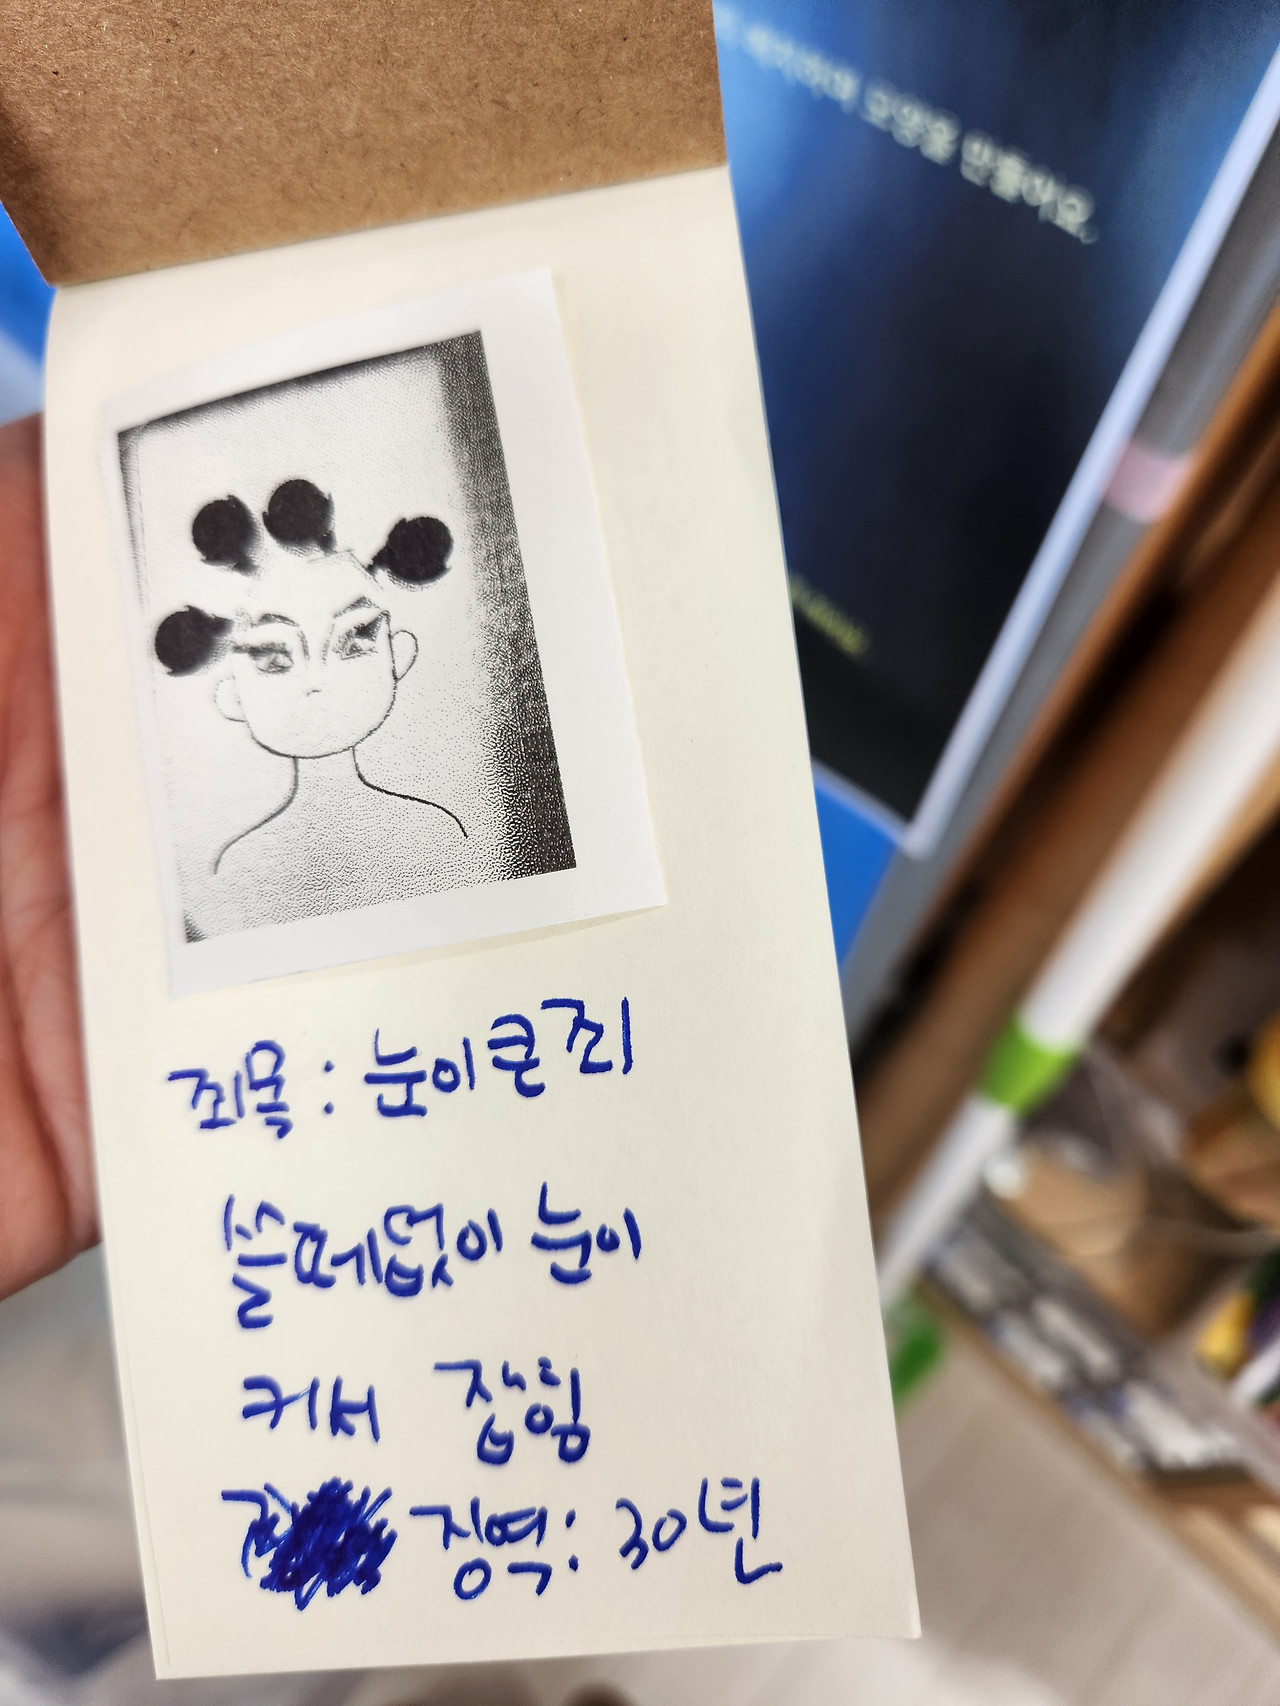 모양을 만들어요.
죄목 : 눈이큰죄
쓸떼없이 눈이
커서 잡힘
징역: 30년